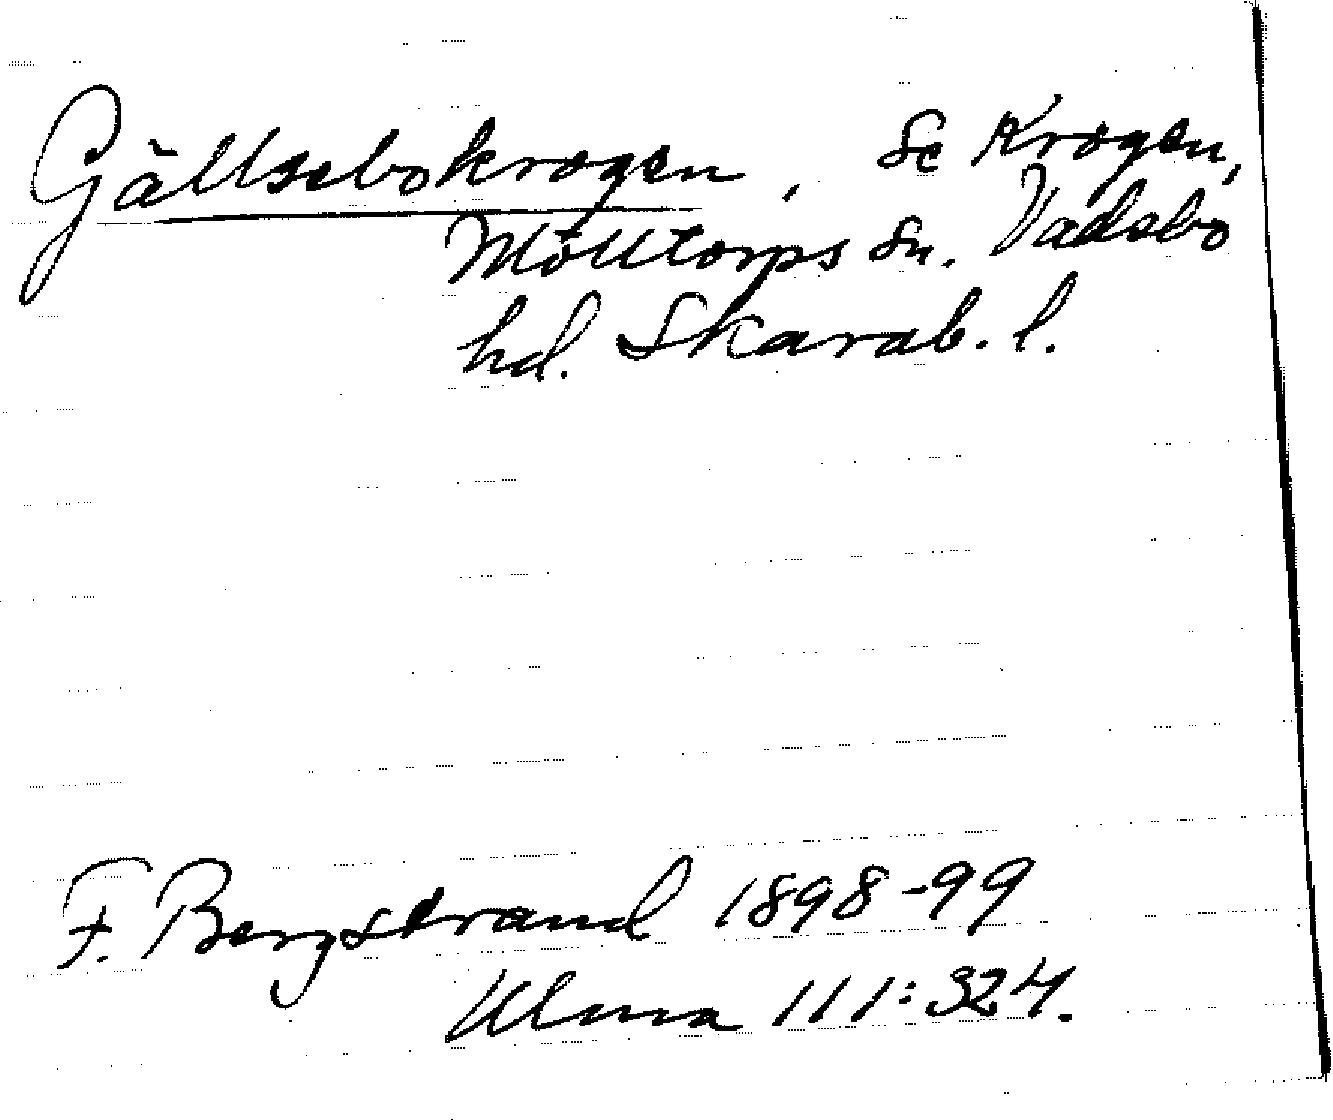 Gällsebokrogen, Se Krogen,
Mölltorps sn. Vadsbo
hd. Skarab. l.
F. Bergstrand 1898-99
Ulma 111:324.